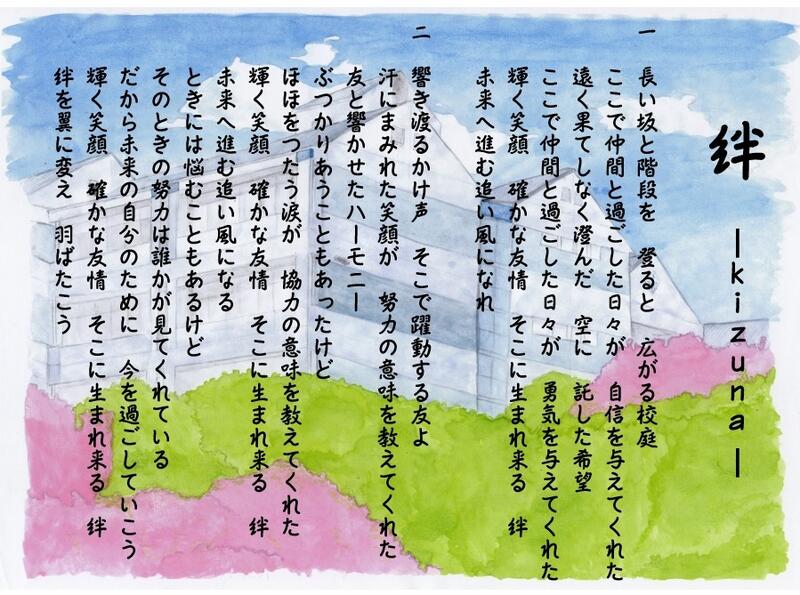 絆 ーkizunaー
一
長い坂と階段を 登ると 広がる校庭
ここで仲間と過ごした日々が 自信を与えてくれた
遠く果てしなく澄んだ 空に 託した希望
ここで仲間と過ごした日々が 勇気を与えてくれた
輝く笑顔 確かな友情 そこに生まれ来る 絆
未来へ進む追い風になれ
二
響き渡るかけ声 そこで躍動する友よ
汗にまみれた笑顔が 努力の意味を教えてくれた
友と響かせたハーモニー
ぶつかりあうこともあったけど
ほほをつたう涙が 協力の意味を教えてくれた
輝く笑顔 確かな友情 そこに生まれ来る 絆
未来へ進む追い風になる
ときには悩むこともあるけど
そのときの努力は誰かが見てくれている
だから未来の自分のために 今を過ごしていこう
輝く笑顔 確かな友情 そこに生まれ来る 絆
絆を翼に変え 羽ばたこう